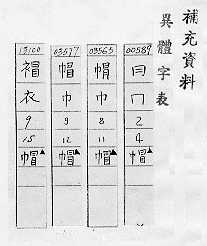 補充資料
異體字表
00589
冃
冂
2
4
帽▲
03565
巾
8
11
帽▲
03577
帽
巾
9
12
帽▲
13100
衣
9
15
帽▲